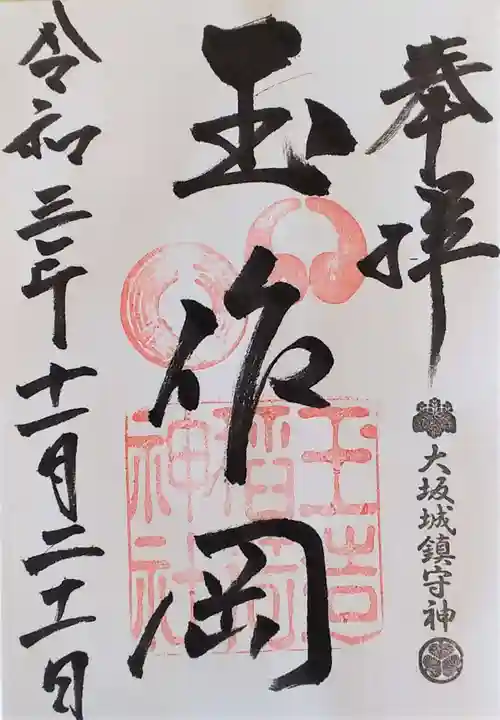 奉拝
大坂城鎮守神
玉作岡
玉造
稲荷
神社
令和三年十一月二十一日